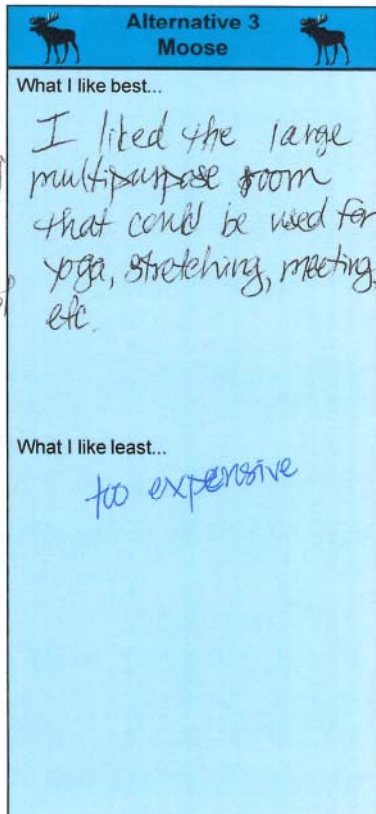 Alternative 3
Moose
What I like best...
I liked the large
multipurpose room
that could be used for
yoga, stretching, meeting,
etc.
What I like least...
too expensive